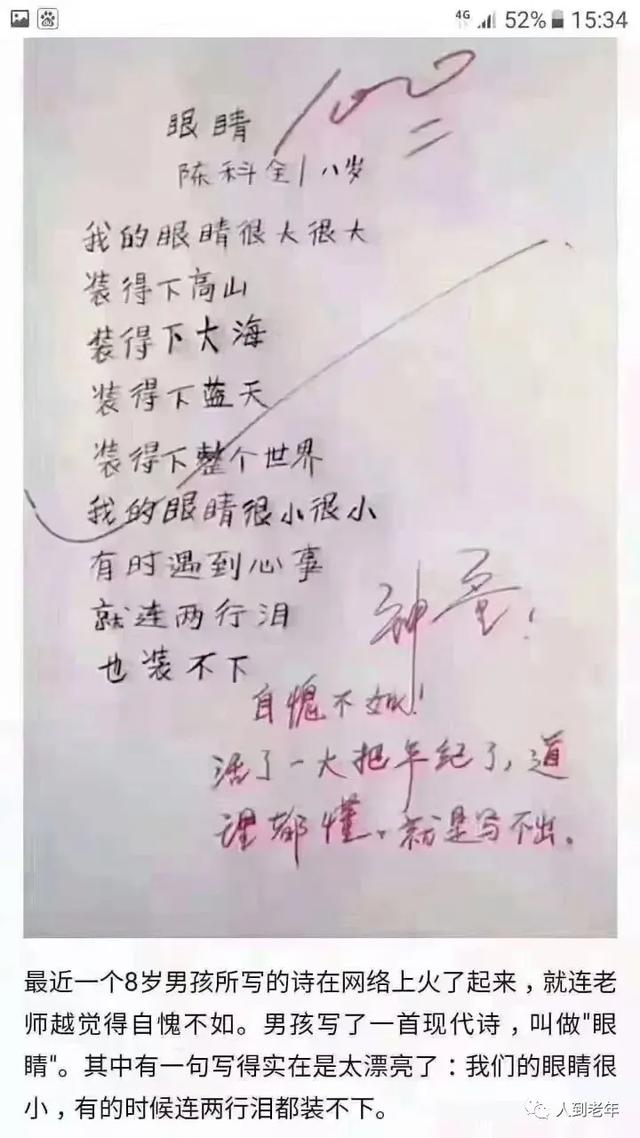 4G 52% 15:34
100
眼睛
陈科全 八岁
我的眼睛很大很大
装得下高山
装得下大海
装得下蓝天
装得下整个世界
我的眼睛很小很小
有时遇到心事
就连两行泪
也装不下
神童!
自愧不如!
活了一大把年纪了,道
理都懂。就是写不出。
最近一个8岁男孩所写的诗在网络上火了起来,就连老
师越觉得自愧不如。男孩写了一首现代诗,叫做"眼
睛"。其中有一句写得实在是太漂亮了:我们的眼睛很
小,有的时候连两行泪都装不下。
人到老年